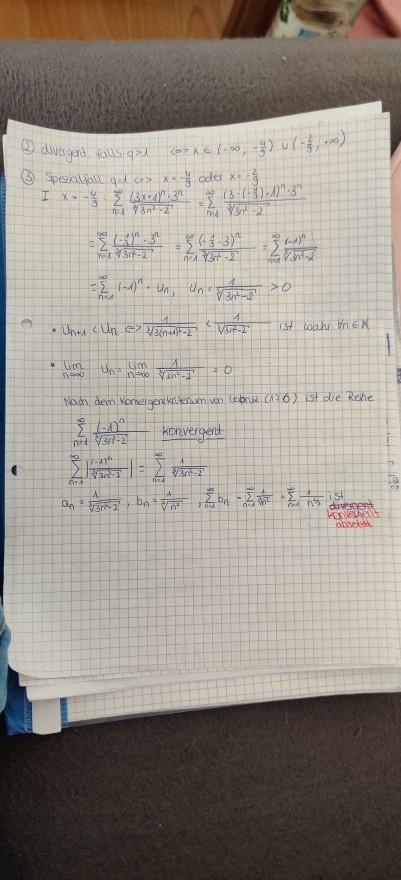 ② divergent, falls q>1 <=> x ∈ (-∞, -4/9) ∪ (-2/9, +∞)
③ Spezialfall q=1 <=> x = -4/9 oder x = -2/9
I x = -4/9 : ∑_{n=1}^{∞} (3x+1)^n · 3^n / ∛(3n²-2) = ∑_{n=1}^{∞} (3·(-4/9)+1)^n · 3^n / ∛(3n²-2)
= ∑_{n=1}^{∞} (-1/3)^n · 3^n / ∛(3n²-2) = ∑_{n=1}^{∞} (-1/3 · 3)^n / ∛(3n²-2) = ∑_{n=1}^{∞} (-1)^n / ∛(3n²-2)
= ∑_{n=1}^{∞} (-1)^n · u_n, u_n = 1/∛(3n²-2) > 0
• u_{n+1} < u_n <=> 1/∛(3(n+1)²-2) < 1/∛(3n²-2) ist wahr ∀n∈ℕ
• lim_{n→∞} u_n = lim_{n→∞} 1/∛(3n²-2) = 0
Nach dem Konvergenzkriterium von Leibniz (176) ist die Reihe
∑_{n=1}^{∞} (-1)^n / ∛(3n²-2) konvergent
∑_{n=1}^{∞} |(-1)^n / ∛(3n²-2)| = ∑_{n=1}^{∞} 1/∛(3n²-2)
a_n = 1/∛(3n²-2), b_n = 1/∛(n²), ∑_{n=1}^{∞} b_n = ∑_{n=1}^{∞} 1/∛(n²) = ∑_{n=1}^{∞} 1/n^{2/3} ist
divergent
konvergent